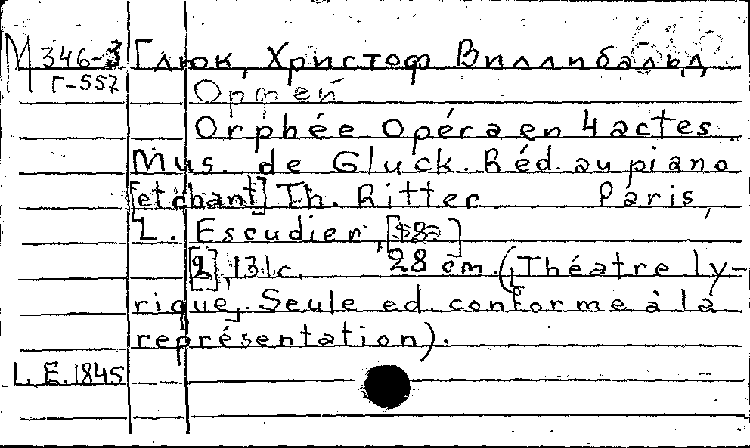 М 346-3 Глюк, Христоф Виллибальд
Г-557
Орфей
Orphée Opéra en 4 actes
Mus. de Gluck. Réd. au piano
[et chant] Th. Ritter Paris,
L. Escudier,
[2], 131 c. 28 cm. (Théatre ly-
rique, Seule ed conforme à la
représentation).
L. E. 1845